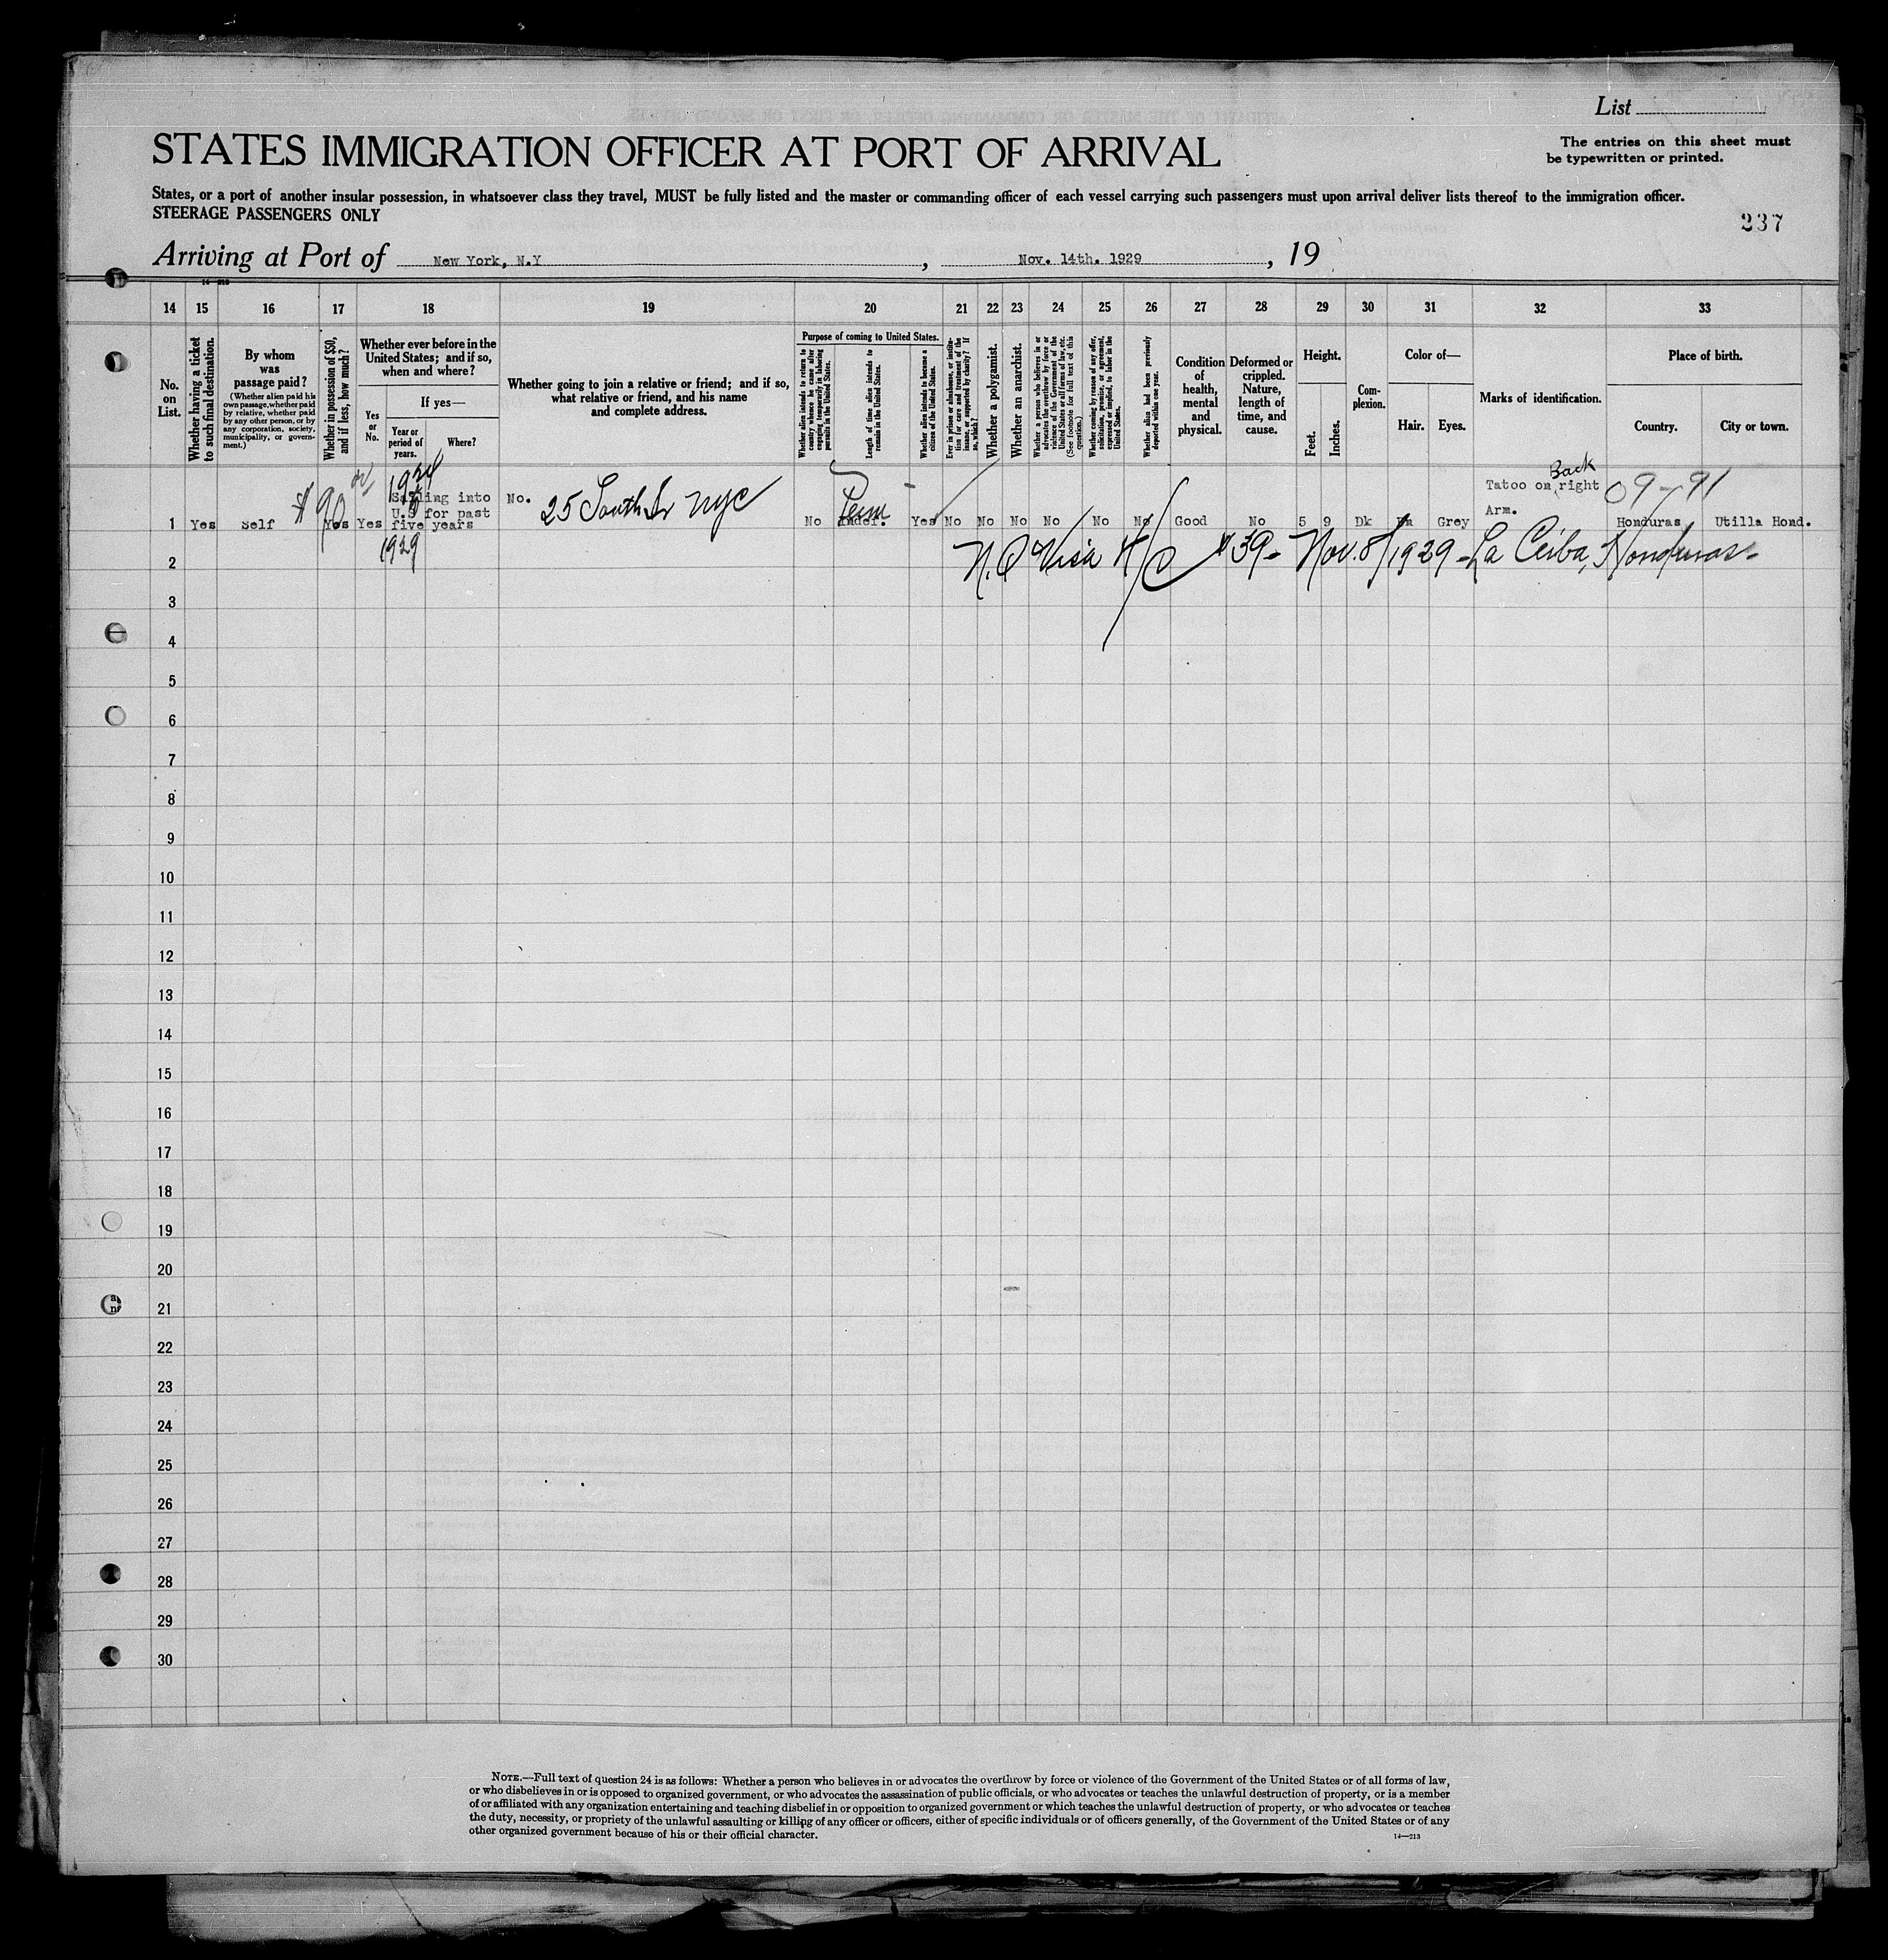 List
STATES IMMIGRATION OFFICER AT PORT OF ARRIVAL
The entries on this sheet must
be typewritten or printed.
States, or a port of another insular possession, in whatsoever class they travel, MUST be fully listed and the master or commanding officer of each vessel carrying such passengers must upon arrival deliver lists thereof to the immigration officer.
STEERAGE PASSENGERS ONLY
237
Arriving at Port of New York, N.Y , Nov. 14th. 1929 , 19
14 15 16 17 18 19 20 21 22 23 24 25 26 27 28 29 30 31 32 33
No.
on
List.
Whether having a ticket
to such final destination.
By whom
was
passage paid?
(Whether alien paid his
own passage, whether paid
by relative, whether paid
by any other person, or by
any corporation, society,
municipality, or govern-
ment.)
Whether in possession of $50,
and if less, how much?
Whether ever before in the
United States; and if so,
when and where?
Yes
or
No.
If yes—
Year or
period of
years.
Where?
Whether going to join a relative or friend; and if so,
what relative or friend, and his name
and complete address.
Purpose of coming to United States.
Whether alien intends to return to
country whence he came after
engaging temporarily in laboring
pursuits in the United States.
Length of time alien intends to
remain in the United States.
Whether alien intends to become a
citizen of the United States.
Ever in prison or almshouse, or institu-
tion for care and treatment of the
insane, or supported by charity? If
so, which?
Whether a polygamist.
Whether an anarchist.
Whether a person who believes in or
advocates the overthrow by force or
violence of the Government of the
United States or all forms of law, etc.
(See footnote for full text of this
question.)
Whether coming by reason of any offer,
solicitation, promise, or agreement,
expressed or implied, to labor in the
United States.
Whether alien had been previously
deported within one year.
Condition
of
health,
mental
and
physical.
Deformed or
crippled.
Nature,
length of
time, and
cause.
Height.
Feet.
Inches.
Com-
plexion.
Color of—
Hair.
Eyes.
Marks of identification.
Place of birth.
Country.
City or town.
1 Yes Self $90 Yes Yes
1924
Sailing into
U.S for past
five years
1929
No. 25 South St NYC
No Perm Indef. Yes No No No No No No Good No 5 9 Dk Bn Grey
Back
Tatoo on right
Arm.
09-91
Honduras Utilla Hond.
2 N.Q Visa #39- Nov. 8/1929 - La Ceiba, Honduras
3
4
5
6
7
8
9
10
11
12
13
14
15
16
17
18
19
20
21
22
23
24
25
26
27
28
29
30
NOTE.—Full text of question 24 is as follows: Whether a person who believes in or advocates the overthrow by force or violence of the Government of the United States or of all forms of law,
or who disbelieves in or is opposed to organized government, or who advocates the assassination of public officials, or who advocates or teaches the unlawful destruction of property, or is a member
of or affiliated with any organization entertaining and teaching disbelief in or opposition to organized government or which teaches the unlawful destruction of property, or who advocates or teaches
the duty, necessity, or propriety of the unlawful assaulting or killing of any officer or officers, either of specific individuals or of officers generally, of the Government of the United States or of any
other organized government because of his or their official character.
14—213